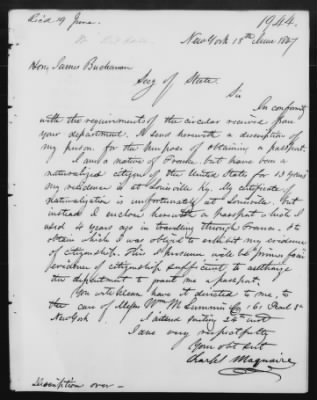 Rec'd 19 June.
1944.
New York 18th June 1847
Hon. James Buchanan
Secy of State
Sir
In conformity
with the requirements of the circular received from
your department. I send herewith a description of
my person, for the purpose of obtaining a passport.
I am a native of France. but have been a
naturalized citizen of the United States for 13 years
my residence is at Louisville Ky. My certificate of
naturalization is unfortunately at Louisville. but
instead I enclose herewith a passport which I
used 4 years ago in travelling through France. to
obtain which I was obliged to exhibit my evidence
of citizenship. This I presume will be prima facie
evidence of citizenship sufficient to authorize
the department to grant me a passport.
You will please have it directed to me, to
the care of Messrs Wm H Co 161 Pearl St
New York. I intend sailing 24th inst
I am very respectfully
Your obt svt
Charles Maquaire
Description over —